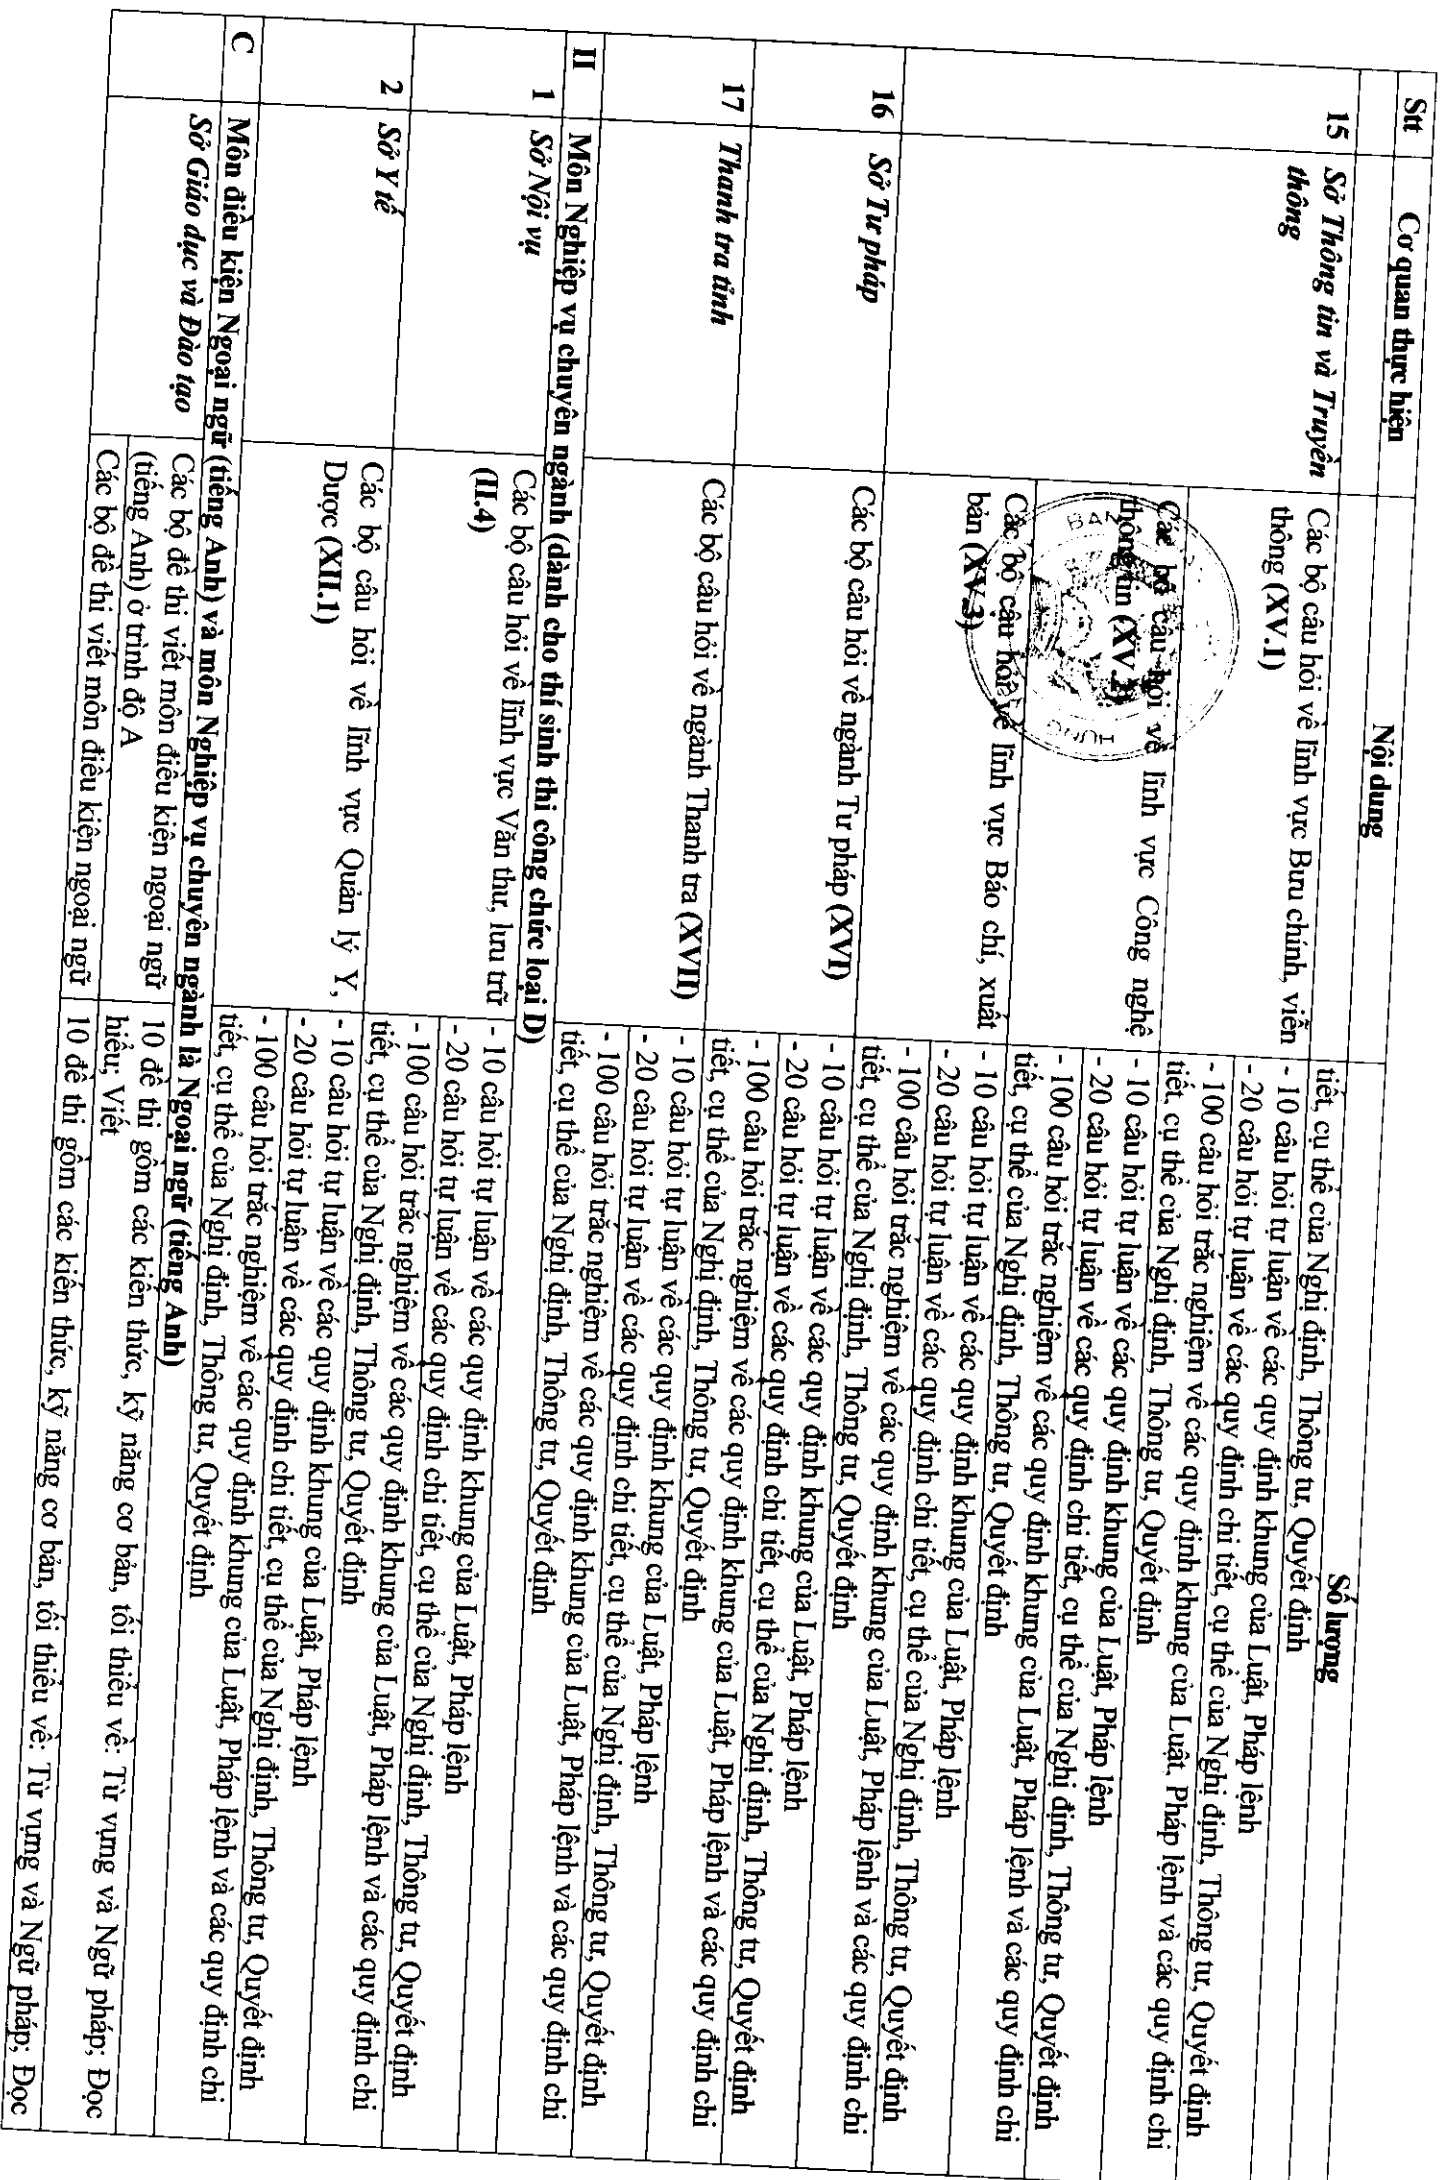 Stt
Cơ quan thực hiện
Nội dung
Số lượng
tiết, cụ thể của Nghị định, Thông tư, Quyết định
15
Sở Thông tin và Truyền
thông
Các bộ câu hỏi về lĩnh vực Bưu chính, viễn
thông (XV.1)
- 10 câu hỏi tự luận về các quy định khung của Luật, Pháp lệnh
- 20 câu hỏi tự luận về các quy định chi tiết, cụ thể của Nghị định, Thông tư, Quyết định
- 100 câu hỏi trắc nghiệm về các quy định khung của Luật, Pháp lệnh và các quy định chi
tiết, cụ thể của Nghị định, Thông tư, Quyết định
Các bộ câu hỏi về lĩnh vực Công nghệ
thông tin
- 10 câu hỏi tự luận về các quy định khung của Luật, Pháp lệnh
- 20 câu hỏi tự luận về các quy định chi tiết, cụ thể của Nghị định, Thông tư, Quyết định
- 100 câu hỏi trắc nghiệm về các quy định khung của Luật, Pháp lệnh và các quy định chi
tiết, cụ thể của Nghị định, Thông tư, Quyết định
Các bộ câu hỏi về lĩnh vực Báo chí, xuất
bản (XV.3)
- 10 câu hỏi tự luận về các quy định khung của Luật, Pháp lệnh
- 20 câu hỏi tự luận về các quy định chi tiết, cụ thể của Nghị định, Thông tư, Quyết định
- 100 câu hỏi trắc nghiệm về các quy định khung của Luật, Pháp lệnh và các quy định chi
tiết, cụ thể của Nghị định, Thông tư, Quyết định
16
Sở Tư pháp
Các bộ câu hỏi về ngành Tư pháp (XVI)
- 10 câu hỏi tự luận về các quy định khung của Luật, Pháp lệnh
- 20 câu hỏi tự luận về các quy định chi tiết, cụ thể của Nghị định, Thông tư, Quyết định
- 100 câu hỏi trắc nghiệm về các quy định khung của Luật, Pháp lệnh và các quy định chi
tiết, cụ thể của Nghị định, Thông tư, Quyết định
17
Thanh tra tỉnh
Các bộ câu hỏi về ngành Thanh tra (XVII)
- 10 câu hỏi tự luận về các quy định khung của Luật, Pháp lệnh
- 20 câu hỏi tự luận về các quy định chi tiết, cụ thể của Nghị định, Thông tư, Quyết định
- 100 câu hỏi trắc nghiệm về các quy định khung của Luật, Pháp lệnh và các quy định chi
tiết, cụ thể của Nghị định, Thông tư, Quyết định
II
Môn Nghiệp vụ chuyên ngành (dành cho thí sinh thi công chức loại D)
1
Sở Nội vụ
Các bộ câu hỏi về lĩnh vực Văn thư, lưu trữ
(II.4)
- 10 câu hỏi tự luận về các quy định khung của Luật, Pháp lệnh
- 20 câu hỏi tự luận về các quy định chi tiết, cụ thể của Nghị định, Thông tư, Quyết định
- 100 câu hỏi trắc nghiệm về các quy định khung của Luật, Pháp lệnh và các quy định chi
tiết, cụ thể của Nghị định, Thông tư, Quyết định
2
Sở Y tế
Các bộ câu hỏi về lĩnh vực Quản lý Y,
Dược (XII.1)
- 10 câu hỏi tự luận về các quy định khung của Luật, Pháp lệnh
- 20 câu hỏi tự luận về các quy định chi tiết, cụ thể của Nghị định, Thông tư, Quyết định
- 100 câu hỏi trắc nghiệm về các quy định khung của Luật, Pháp lệnh và các quy định chi
tiết, cụ thể của Nghị định, Thông tư, Quyết định
C
Môn điều kiện Ngoại ngữ (tiếng Anh) và môn Nghiệp vụ chuyên ngành là Ngoại ngữ (tiếng Anh)
Sở Giáo dục và Đào tạo
Các bộ đề thi viết môn điều kiện ngoại ngữ
(tiếng Anh) ở trình độ A
10 đề thi gồm các kiến thức, kỹ năng cơ bản, tối thiểu về: Từ vựng và Ngữ pháp; Đọc
hiểu; Viết
Các bộ đề thi viết môn điều kiện ngoại ngữ
10 đề thi gồm các kiến thức, kỹ năng cơ bản, tối thiểu về: Từ vựng và Ngữ pháp; Đọc